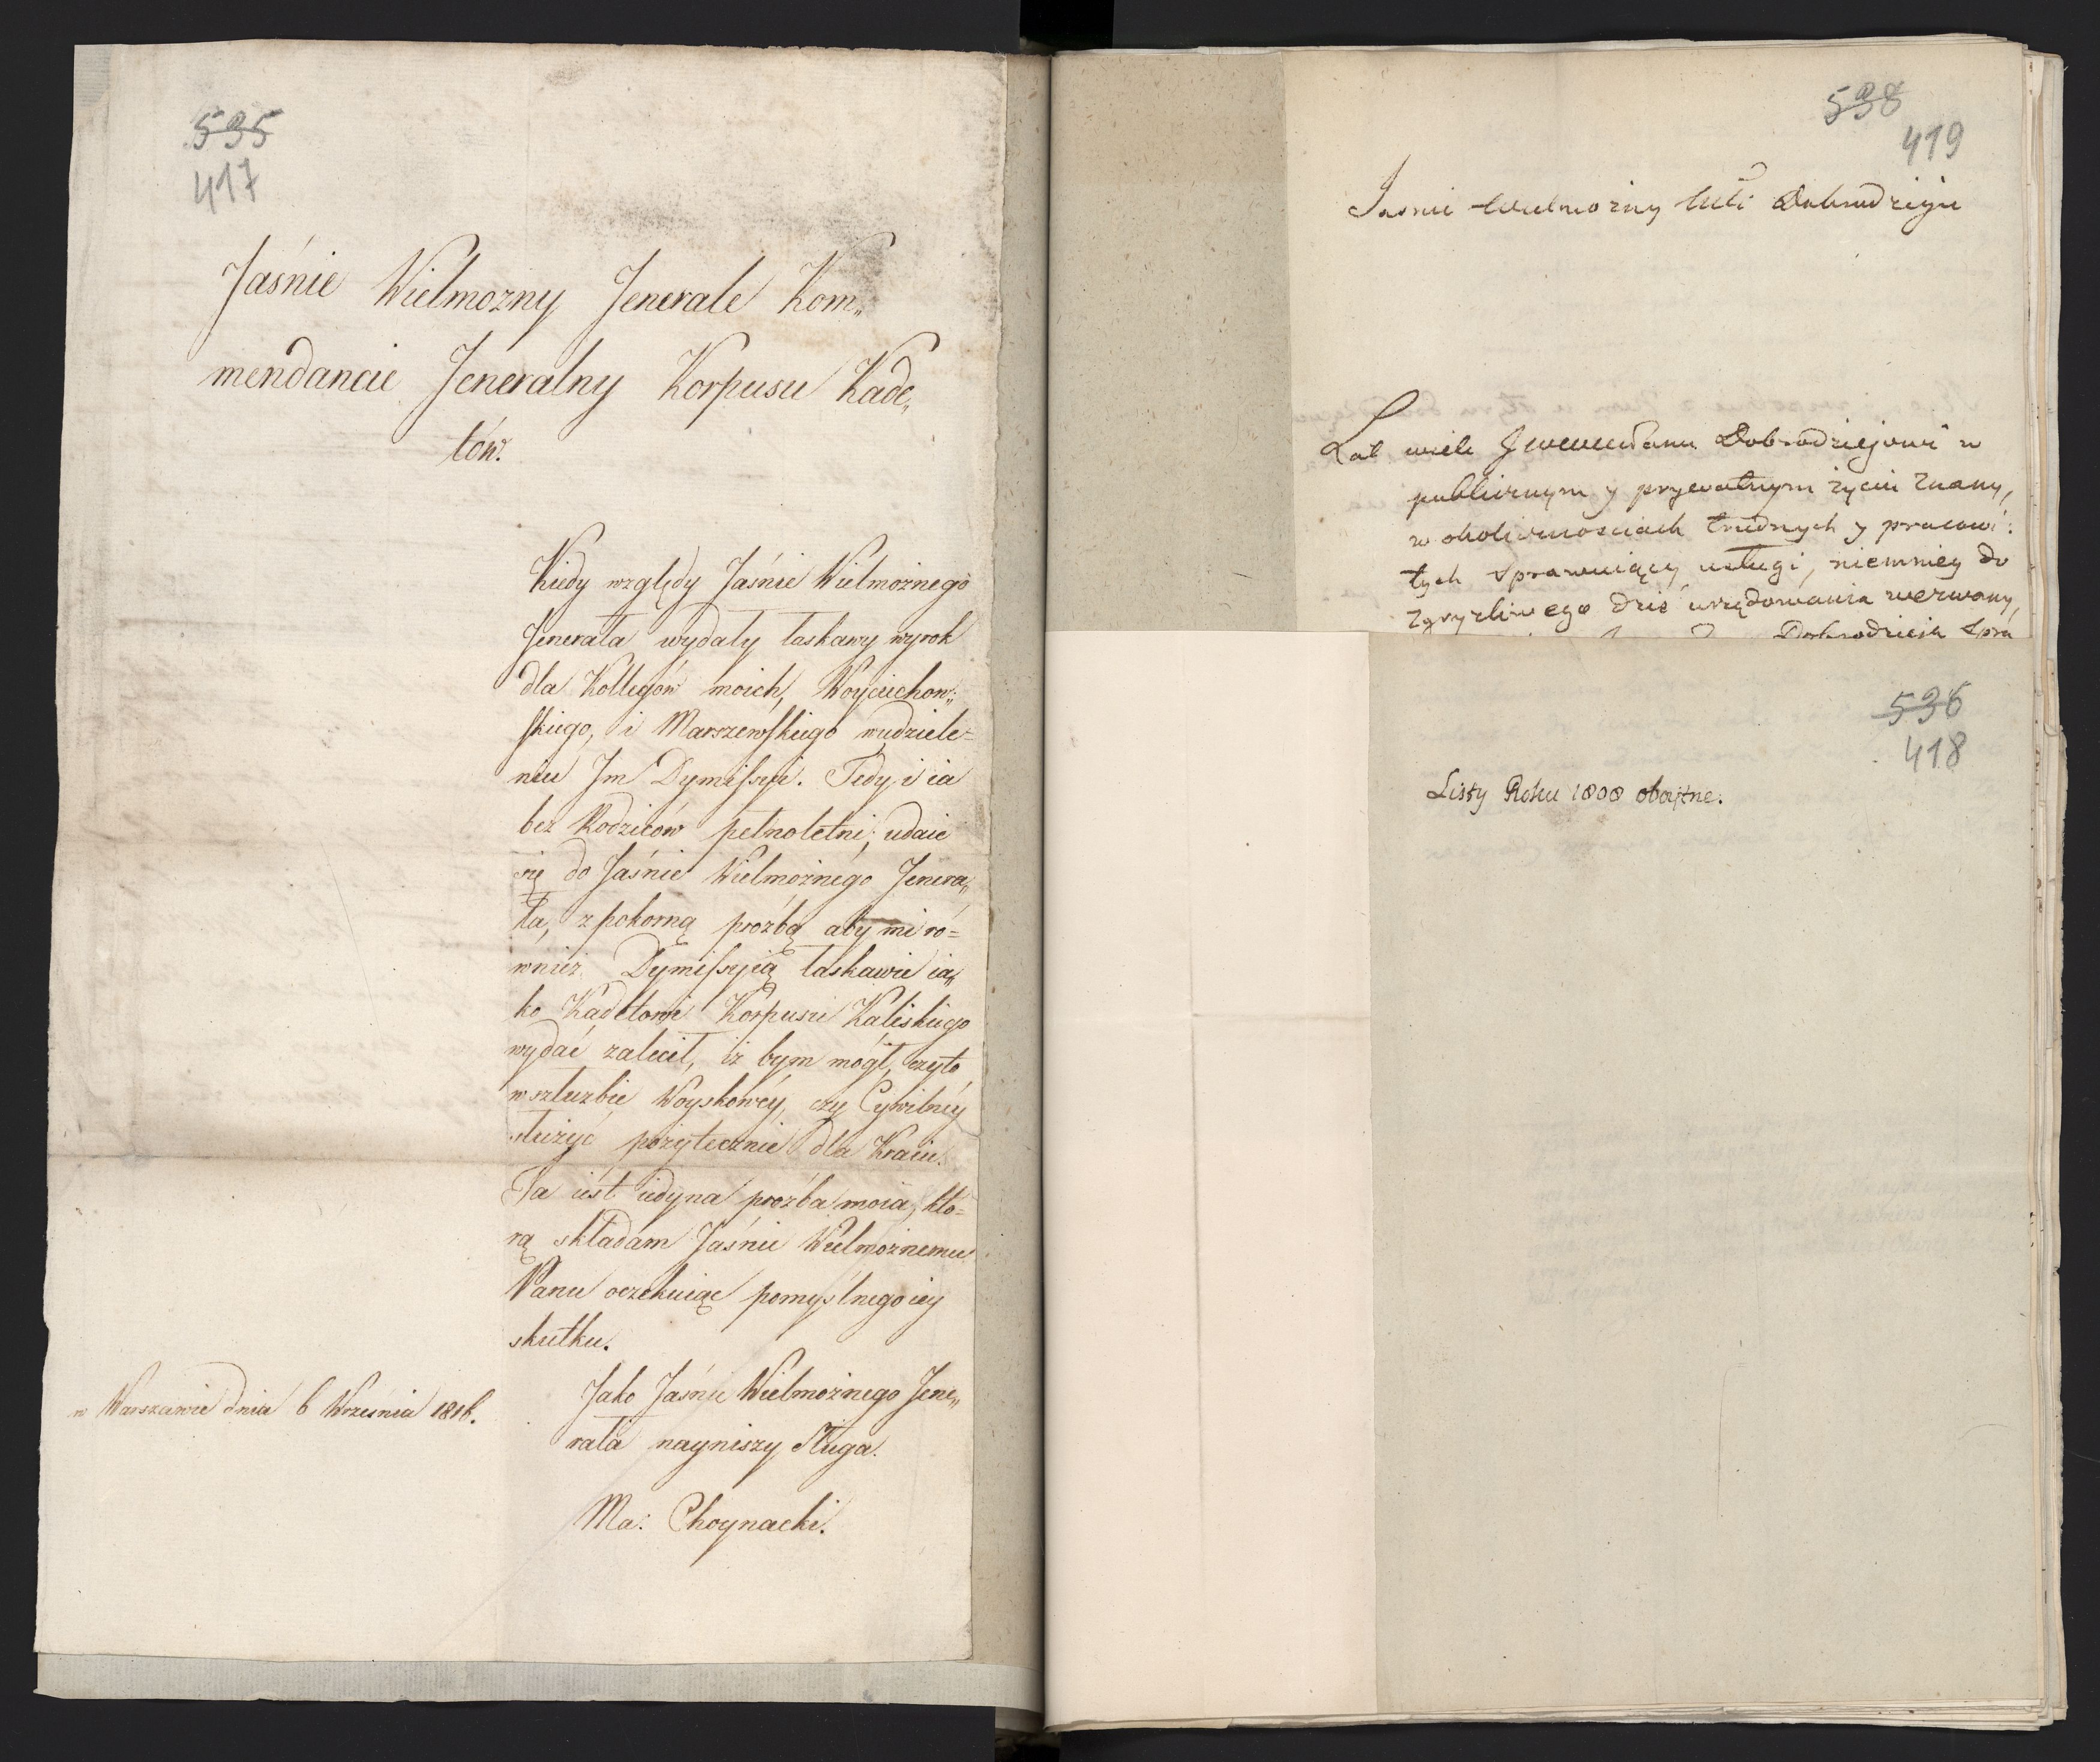 535
417
Jaśnie Wielmozny Jenerale Kom„
mendancie Jeneralny Korpusu Kade„
tów.
Kiedy względy Jaśnie Wielmożnego
Jenerała wydały łaskawy wyrok
dla Kollegów moich, Woyciechow„
skiego, i Marszewskiego wudziele=
niu Jm Dymissyi. Tedy i ia
bez Rodziców pełnoletni, udaie
się do Jaśnie Wielmożnego Jenera„
ła, z pokorną proźbą aby mi ró=
wnież Dymissyią łaskawie ia„
ko Kadetowi Korpusu Kaliskiego
wydać zalecił, iż bym mógł, czyto
w szłuzbie Woyskowéy, czy Cywilnéy
służyć pożytecznie dla Kraiu.
Ta iest iedyna proźba moia, któ=
rą składam Jaśnie Wielmożnemu
Panu oczekuiąc pomyślnego iey
skutku.
w Warszawie dnia 6 Września 1816.
Jako Jaśnie Wielmożnego Jene„
rała nayniszy Sługa.
Ma: Choynacki.
538
419
Jasnie Wielmozny Dobrodzieju
Lat wiele Dobrodziejowi w
publicznym y prywatnym życiu znany,
w okolicznosciach trudnych y pracowi:
tych sprawuiący usługi, niemniey do
zgryzliwego dziś urzędowania wezwany,
Dobrodzieja spra
536
418
Listy Roku 1808 obojętne.